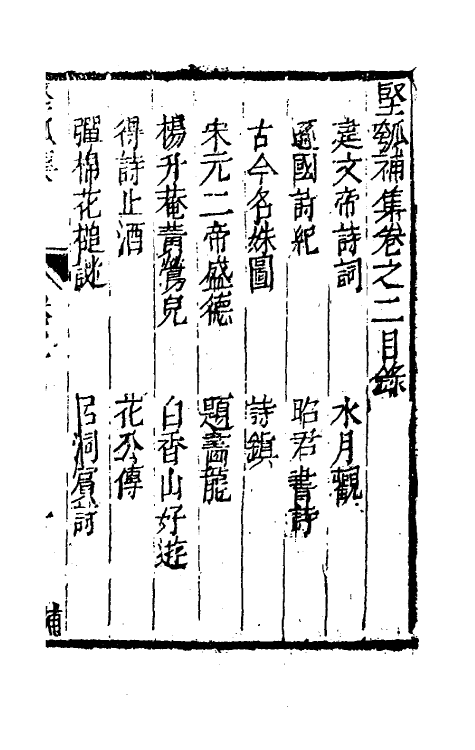 堅瓠補集卷之二目錄
建文帝詩詞　水月觀
遜國詩紀　昭君書詩
古今名姝圖　詩鎮
宋元二帝盛德　題畫龍
楊升菴黃鶯兒　白香山好遊
得詩止酒　花公傳
彈棉花槌謎　呂洞賓詞
補